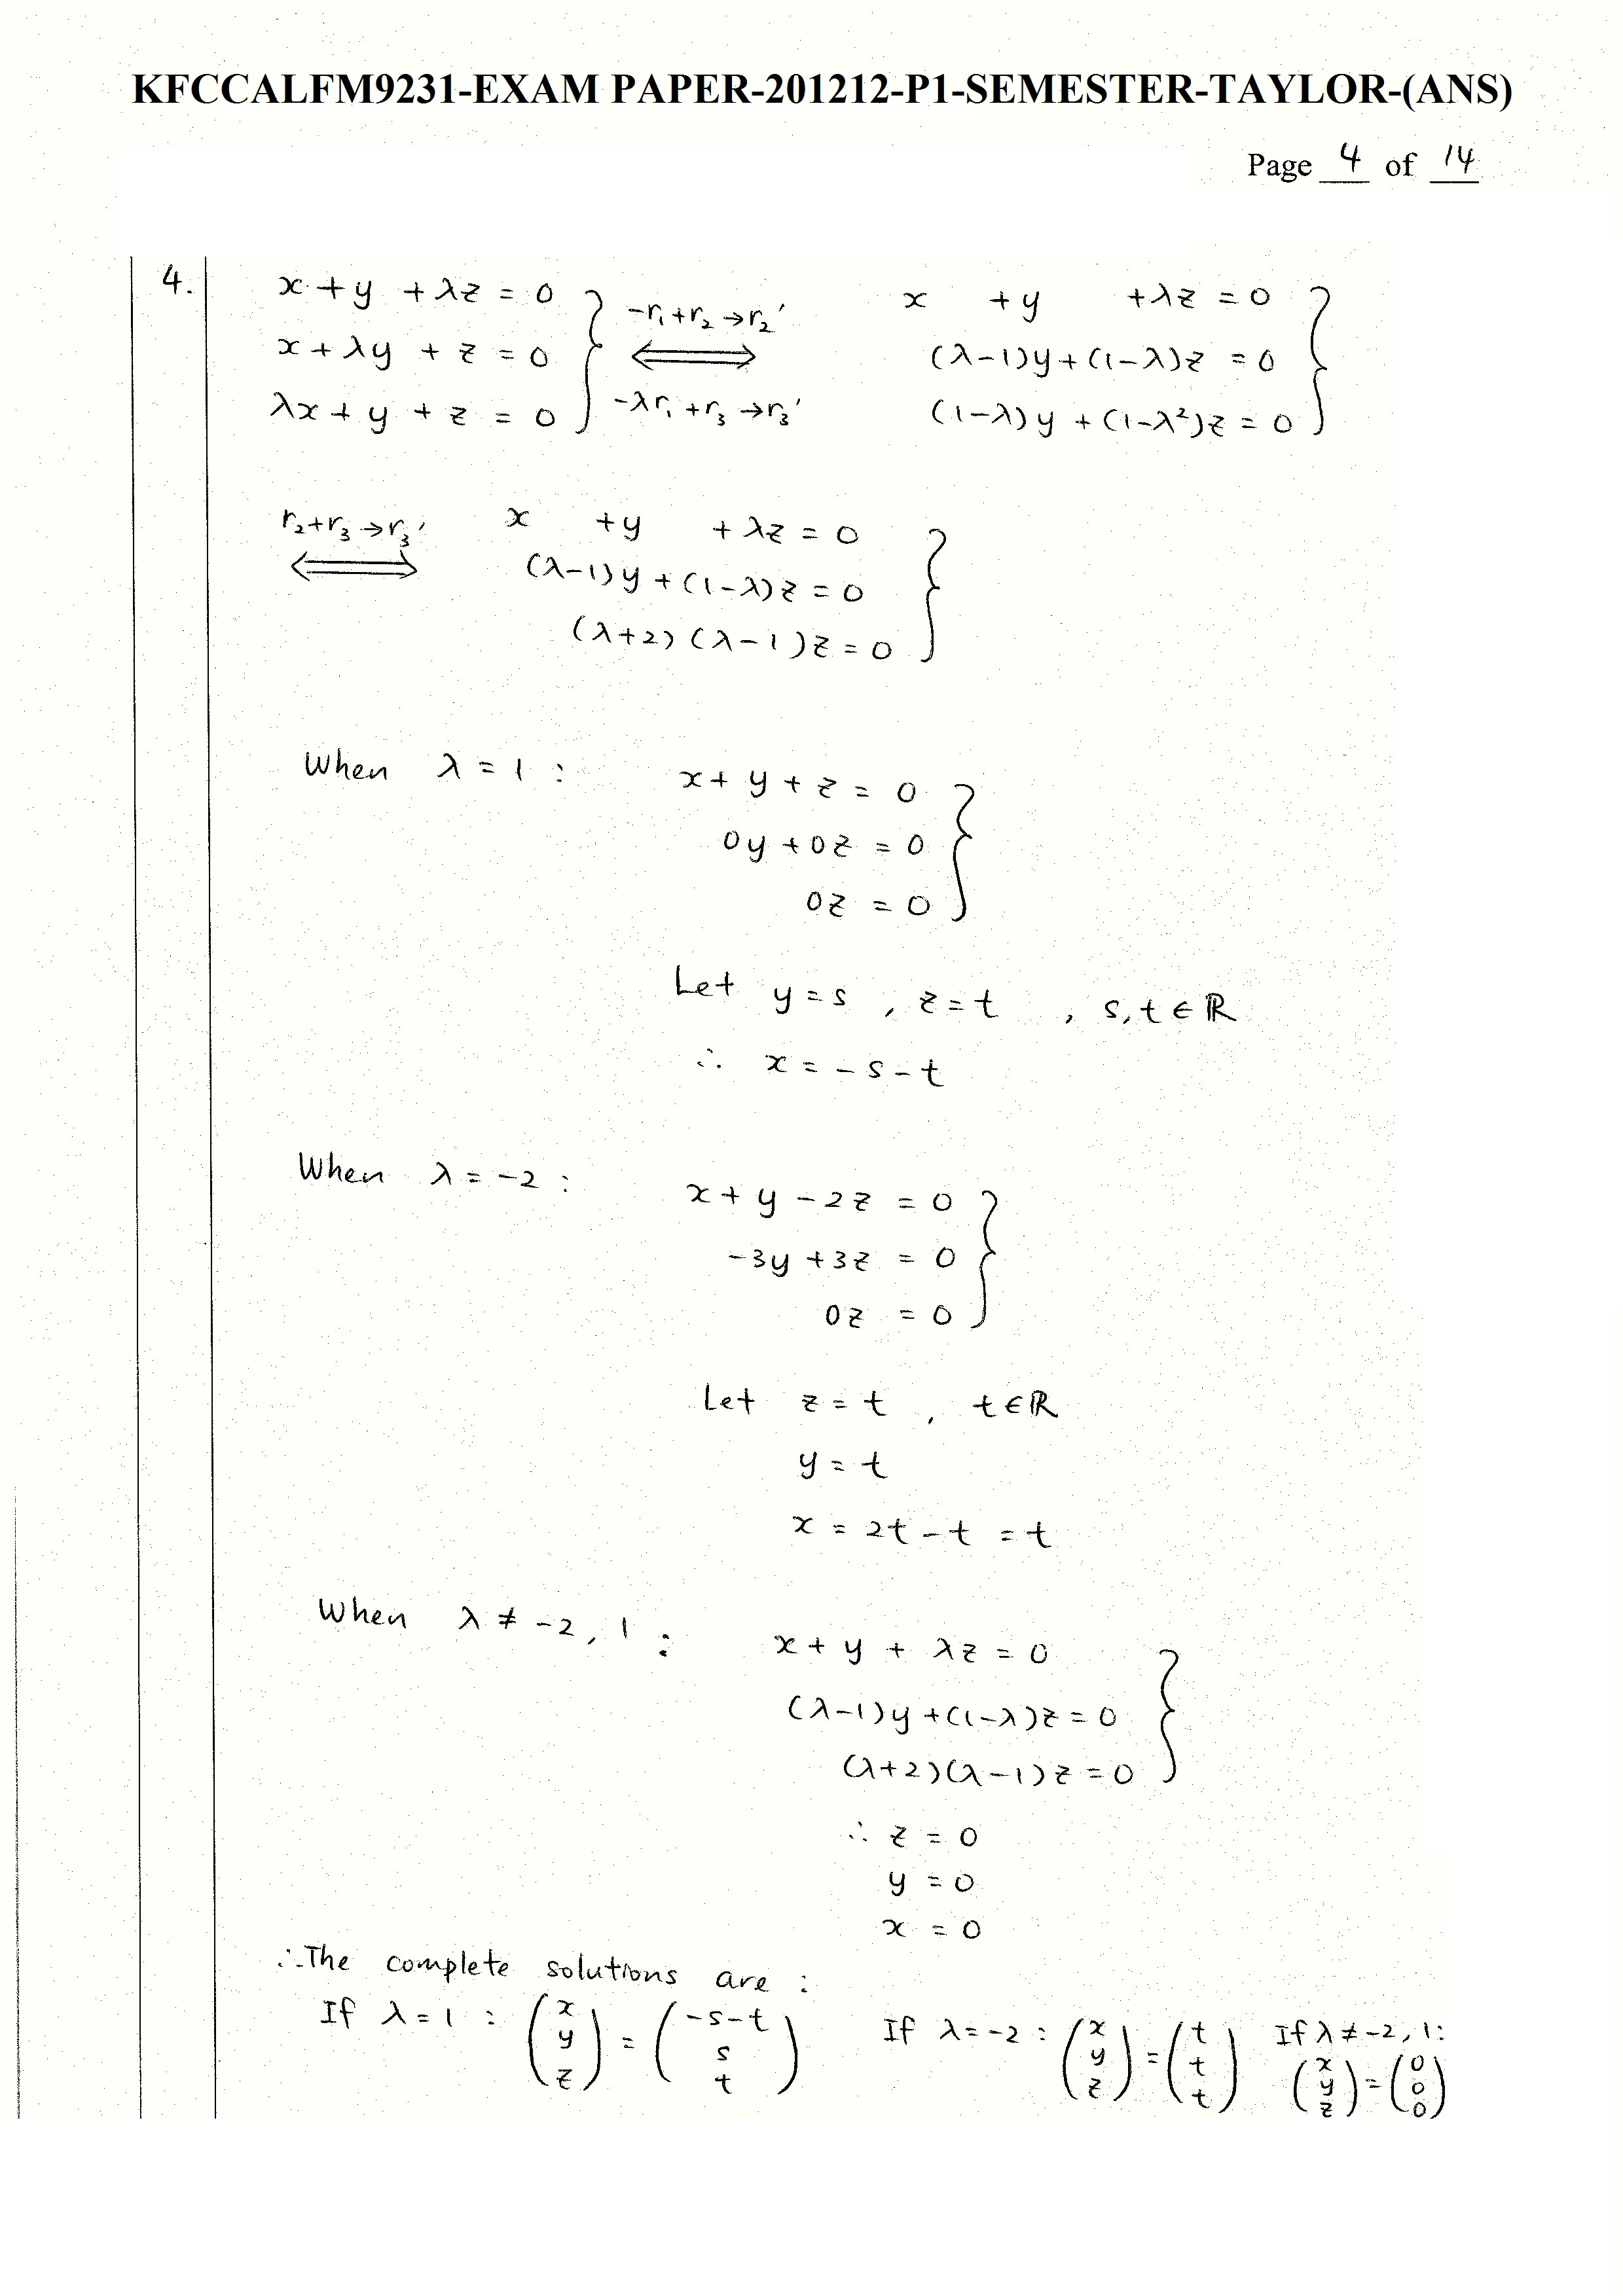 KFCCALFM9231-EXAM PAPER-201212-P1-SEMESTER-TAYLOR-(ANS)
Page 4 of 14
4.
x + y + λz = 0
x + λy + z = 0
λx + y + z = 0
-r₁+r₂ → r₂'
⟺
-λr₁+r₃ → r₃'
x + y + λz = 0
(λ-1)y + (1-λ)z = 0
(1-λ)y + (1-λ²)z = 0
r₂+r₃ → r₃'
⟺
x + y + λz = 0
(λ-1)y + (1-λ)z = 0
(λ+2)(λ-1)z = 0
When λ = 1 :
x + y + z = 0
0y + 0z = 0
0z = 0
Let y = s , z = t , s, t ∈ ℝ
∴ x = -s - t
When λ = -2 :
x + y - 2z = 0
-3y + 3z = 0
0z = 0
Let z = t , t ∈ ℝ
y = t
x = 2t - t = t
When λ ≠ -2, 1 :
x + y + λz = 0
(λ-1)y + (1-λ)z = 0
(λ+2)(λ-1)z = 0
∴ z = 0
y = 0
x = 0
∴ The complete solutions are :
If λ = 1 : (x y z) = (-s-t s t)
If λ = -2 : (x y z) = (t t t)
If λ ≠ -2, 1 :
(x y z) = (0 0 0)